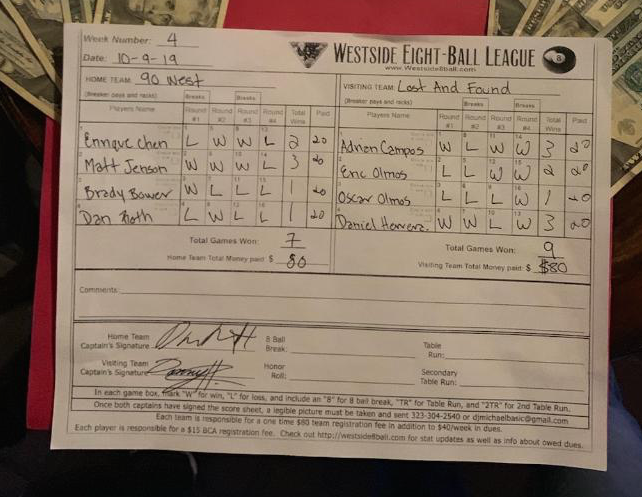 Week Number: 4
Date: 10-9-19
WESTSIDE EIGHT-BALL LEAGUE 8
www.Westside8ball.com
HOME TEAM 90 West
VISITING TEAM Lost And Found
(Breaker pays and racks) Breaks Breaks
(Breaker pays and racks) Breaks Breaks
Players Name Round #1 Round #2 Round #3 Round #4 Total Wins Paid
Players Name Round #1 Round #2 Round #3 Round #4 Total Wins Paid
Enrique Chen L W W L 2 20
Matt Jenson W W W L 3 20
Brady Bower W L L L 1 20
Dan Roth L W L L 1 20
Adrian Campos W L W W 3 20
Eric Olmos L L W W 2 20
Oscar Olmos L L L W 1 20
Daniel Herrera. W W L W 3 20
Total Games Won: 7
Home Team Total Money paid: $ 80
Total Games Won: 9
Visiting Team Total Money paid: $ $80
Comments:
Home Team Captain's Signature
8 Ball Break:
Table Run:
Visiting Team Captain's Signature
Honor Roll:
Secondary Table Run:
In each game box, mark "W" for win, "L" for loss, and include an "8" for 8 ball break, "TR" for Table Run, and "2TR" for 2nd Table Run.
Once both captains have signed the score sheet, a legible picture must be taken and sent 323-304-2540 or djmichaelbasic@gmail.com
Each team is responsible for a one time $80 team registration fee in addition to $40/week in dues.
Each player is responsible for a $15 BCA registration fee. Check out http://westside8ball.com for stat updates as well as info about owed dues.